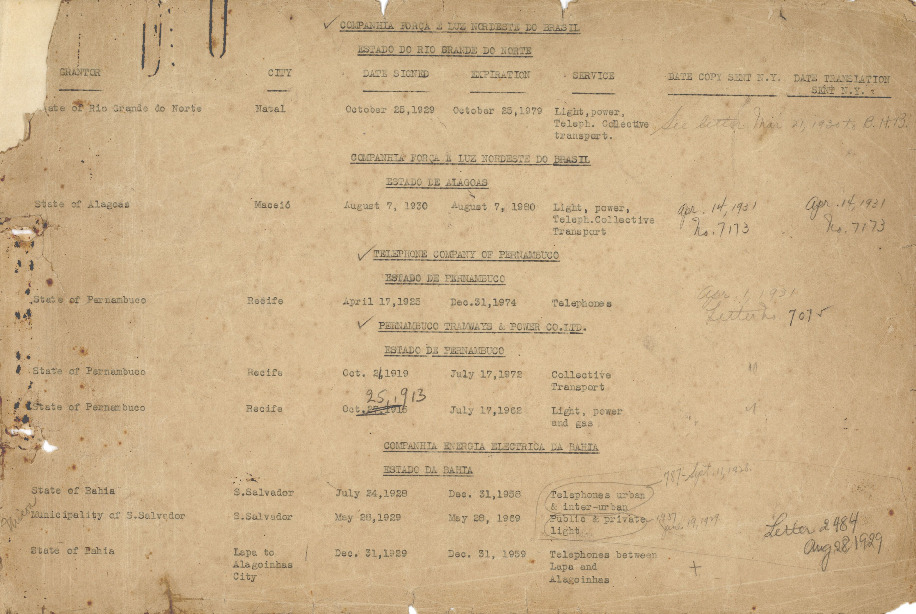 COMPANHIA FORÇA E LUZ NORDESTE DO BRASIL
ESTADO DO RIO GRANDE DO NORTE
GRANTOR CITY DATE SIGNED EXPIRATION SERVICE DATE COPY SENT N.Y. DATE TRANSLATION
SENT N.Y.
ate of Rio Grande do Norte Natal October 25,1929 October 25,1979 Light,power,
Teleph. Collective See letter Mar 21,1930 B.H.B.
transport.
COMPANHIA FORÇA E LUZ NORDESTE DO BRASIL
ESTADO DE ALAGOAS
State of Alagoas Maceió August 7, 1930 August 7, 1980 Light, power, Apr. 14, 1931 Apr. 14, 1931
Teleph.Collective No. 7173 No. 7173
Transport
TELEPHONE COMPANY OF PERNAMBUCO
ESTADO DE PERNAMBUCO
State of Pernambuco Recife April 17,1925 Dec.31,1974 Telephones Apr. 1931
Letter No. 7075
PERNAMBUCO TRAMWAYS & POWER CO.LTD.
ESTADO DE PERNAMBUCO
State of Pernambuco Recife Oct. 1919 July 17,1972 Collective "
Transport
25, 1913
State of Pernambuco Recife Oct. July 17,1962 Light, power "
and gas
COMPANHIA ENERGIA ELECTRICA DA BAHIA
ESTADO DA BAHIA
State of Bahia S.Salvador July 24,1928 Dec. 31,1958 Telephones urban
& inter-urban
Municipality of S.Salvador S.Salvador May 28,1929 May 28, 1959 Public & private
light Letter 2984
Aug 28 1929
State of Bahia Lapa to Dec. 31,1929 Dec. 31, 1959 Telephones between
Alagoinhas Lapa and +
City Alagoinhas